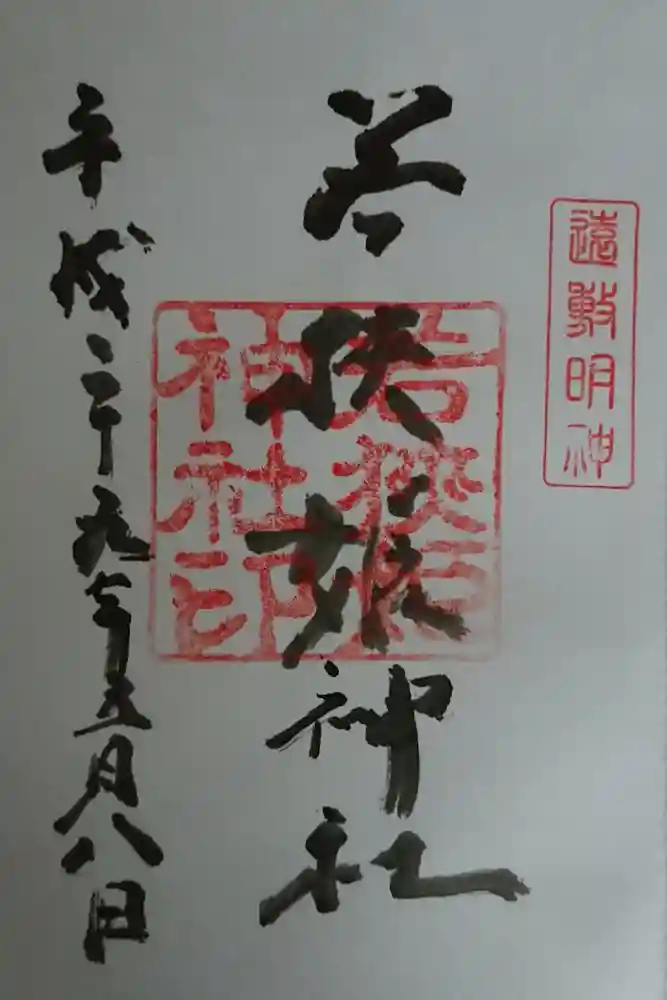 遠敷明神
若狭姫神社
若狹姫
神社印
平成二十九年五月八日